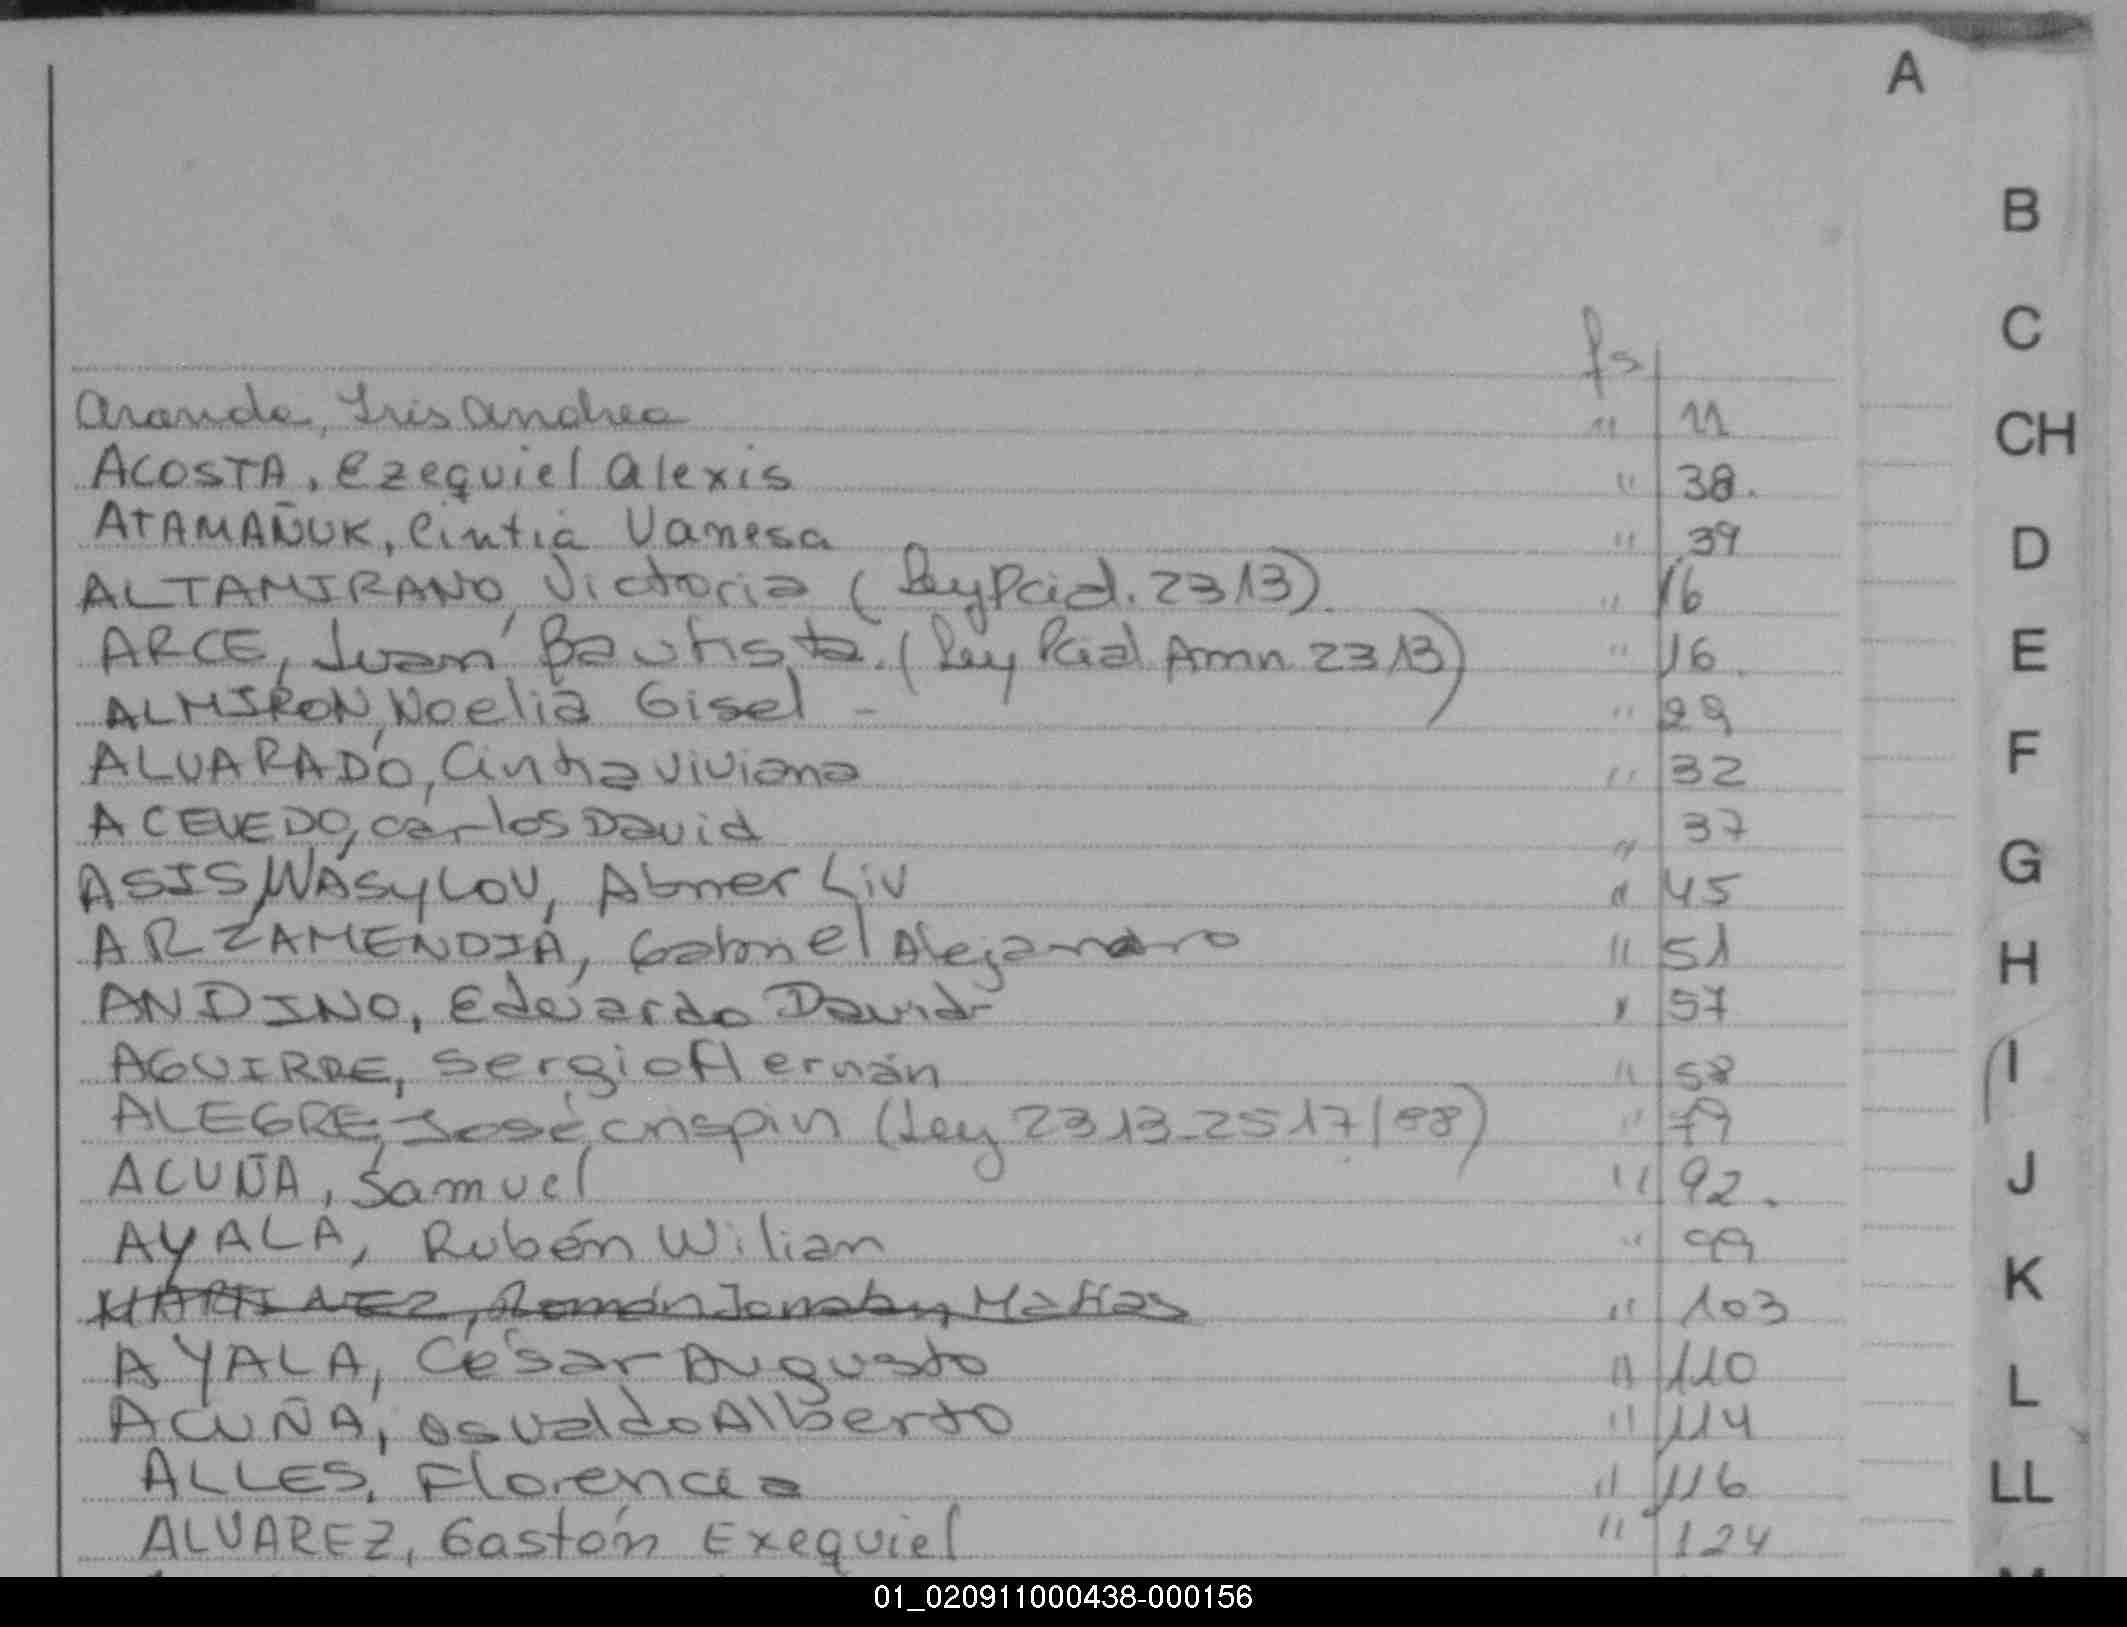 A
B
C
CH
D
E
F
G
H
I
J
K
L
LL
fs
Aranda, Iris Andrea " 11
ACOSTA, Ezequiel Alexis " 38.
ATAMAÑUK, Cintia Vanesa " 39
ALTAMIRANO, Victoria (Ley Pcial. 2313). " 16
ARCE, Juan Bautista. (Ley Pcial Amn 2313) " 16
ALMIRON, Noelia Gisel - " 29
ALVARADO, Cintia Viviana " 32
ACEVEDO, Carlos David " 37
ASIS WASYLOV, Abner Liv " 45
ARZAMENDIA, Gabriel Alejandro " 51
ANDINO, Eduardo David " 57
AGUIRRE, Sergio Hernán " 58
ALEGRE, José Crispin (Ley 2313-2517/88) " 79
ACUÑA, Samuel " 92.
AYALA, Rubén Wilian " 99
MARTINEZ, Román Jonatan Matías " 103
AYALA, César Augusto " 110
ACUÑA, Osvaldo Alberto " 114
ALLES, Florencia " 116
ALVAREZ, Gastón Exequiel " 124
01_020911000438-000156